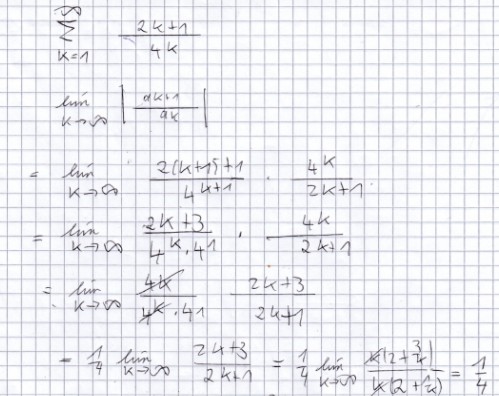 ∞
∑ (2k+1)/(4^k)
k=1
lim k→∞ |a_{k+1}/a_k|
= lim k→∞ (2(k+1)+1)/(4^{k+1}) · (4^k)/(2k+1)
= lim k→∞ (2k+3)/(4^k · 4^1) · (4^k)/(2k+1)
= lim k→∞ (4^k)/(4^k · 4^1) (2k+3)/(2k+1)
= 1/4 lim k→∞ (2k+3)/(2k+1) = 1/4 lim k→∞ (k(2+3/k))/(k(2+1/k)) = 1/4